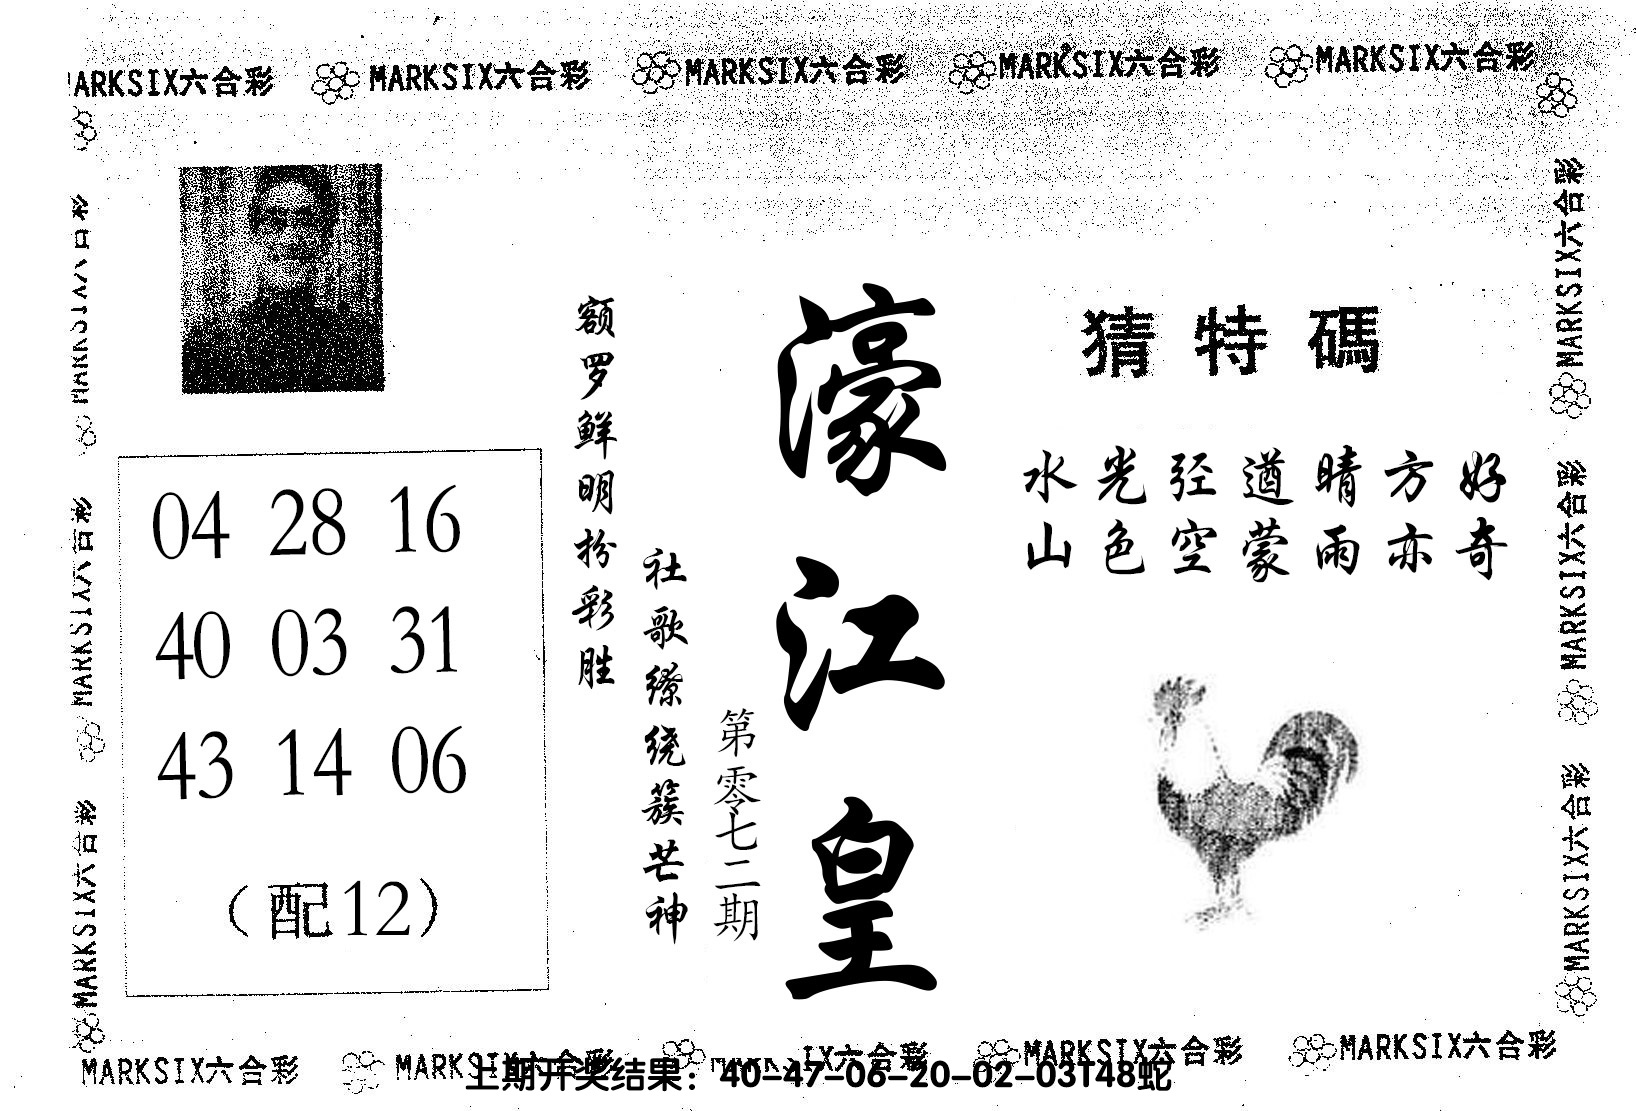 MARKSIX六合彩 MARKSIX六合彩 MARKSIX六合彩 MARKSIX六合彩 MARKSIX六合彩
猜特碼
水光径遒晴方好
山色空蒙雨亦奇
濠江皇
第零七二期
社歌缭绕簇芒神
额罗鲜明扮彩胜
04 28 16
40 03 31
43 14 06
（配12）
MARKSIX六合彩
MARKSIX六合彩
MARKSIX六合彩
MARKSIX六合彩
MARKSIX六合彩
MARKSIX六合彩
MARKSIX六合彩 MARKSIX六合彩 MARKSIX六合彩 MARKSIX六合彩
上期开奖结果：40-47-06-20-02-03T48蛇